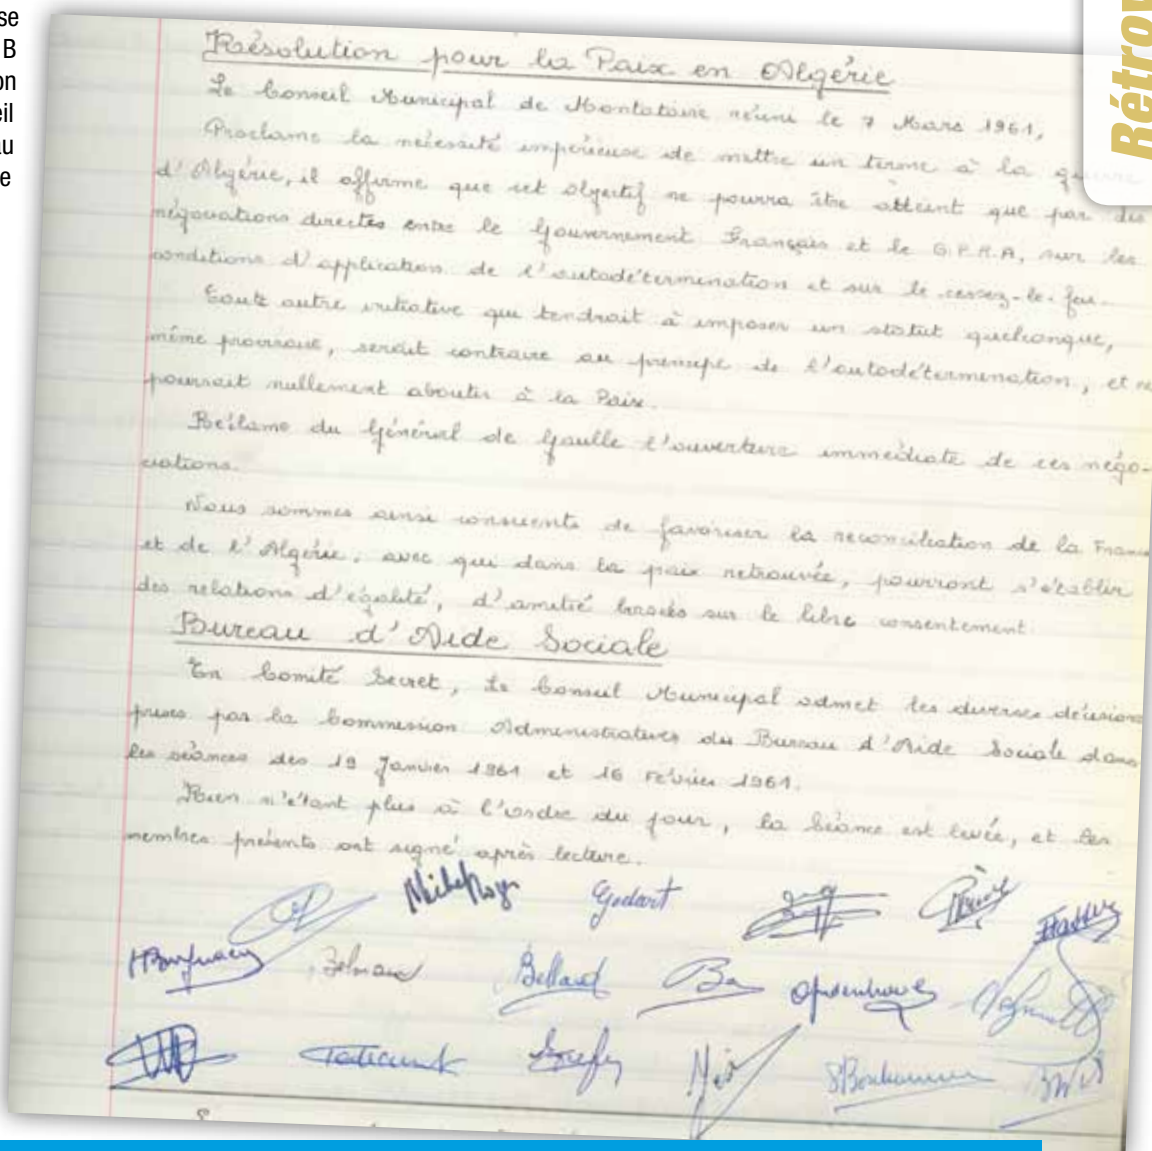 se
B
on
eil
au
e
Rétrov
Résolution pour la Paix en Algérie
Le Conseil Municipal de Montataire réuni le 7 Mars 1961,
Proclame la nécessité impérieuse de mettre un terme à la guerre
d'Algérie, il affirme que cet objectif ne pourra être atteint que par des
négociations directes entre le Gouvernement Français et le G.P.R.A, sur les
conditions d'application de l'autodétermination et sur le cessez-le-feu.
Toute autre initiative qui tendrait à imposer un statut quelconque,
même provisoire, serait contraire au principe de l'autodétermination, et ne
pourrait nullement aboutir à la Paix.
Réclame du Général de Gaulle l'ouverture immédiate de ces négo-
ciations.
Nous sommes ainsi conscients de favoriser la réconciliation de la France
et de l'Algérie, avec qui dans la paix retrouvée, pourront s'établir
des relations d'égalité, d'amitié basées sur le libre consentement.
Bureau d'Aide Sociale
En Comité Secret, Le Conseil Municipal admet les diverses décisions
prises par la Commission Administratives du Bureau d'Aide Sociale dans
les séances des 19 Janvier 1961 et 16 Février 1961.
Rien n'étant plus à l'ordre du jour, la Séance est levée, et les
membres présents ont signé après lecture.
Godart
Bellard